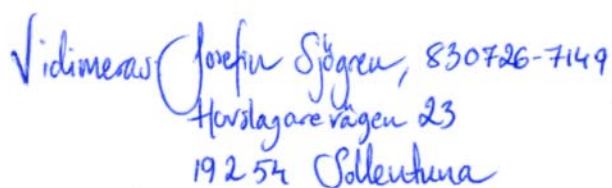 Vidimeras Josefin Sjögren, 830726-7149
Hovslagarevägen 23
192 54 Sollentuna